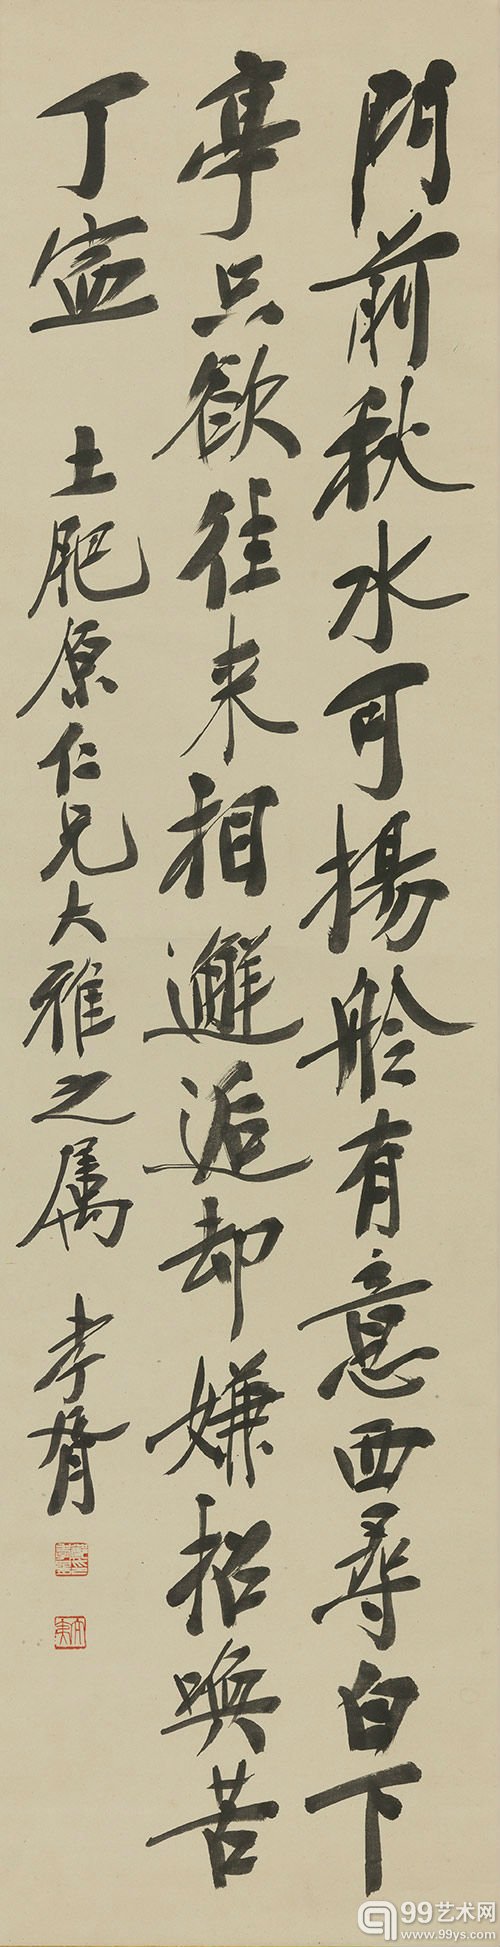 門前秋水可揚舲有意西尋白下
亭只欲往来相邂逅却嫌招喚苦
丁寧
土肥原仁兄大雅之属 孝胥
99艺术网
www.99ys.com